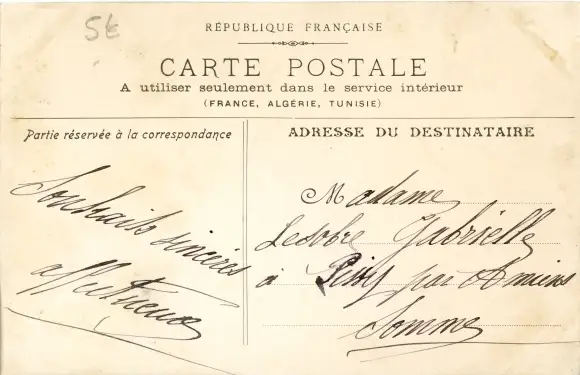 5f
RÉPUBLIQUE FRANÇAISE
CARTE POSTALE
A utiliser seulement dans le service intérieur
(FRANCE, ALGÉRIE, TUNISIE)
Partie réservée à la correspondance
Souhaits sincères
affectueux
ADRESSE DU DESTINATAIRE
Madame
Lesobre Gabrielle
à Pissy par Amiens
Somme